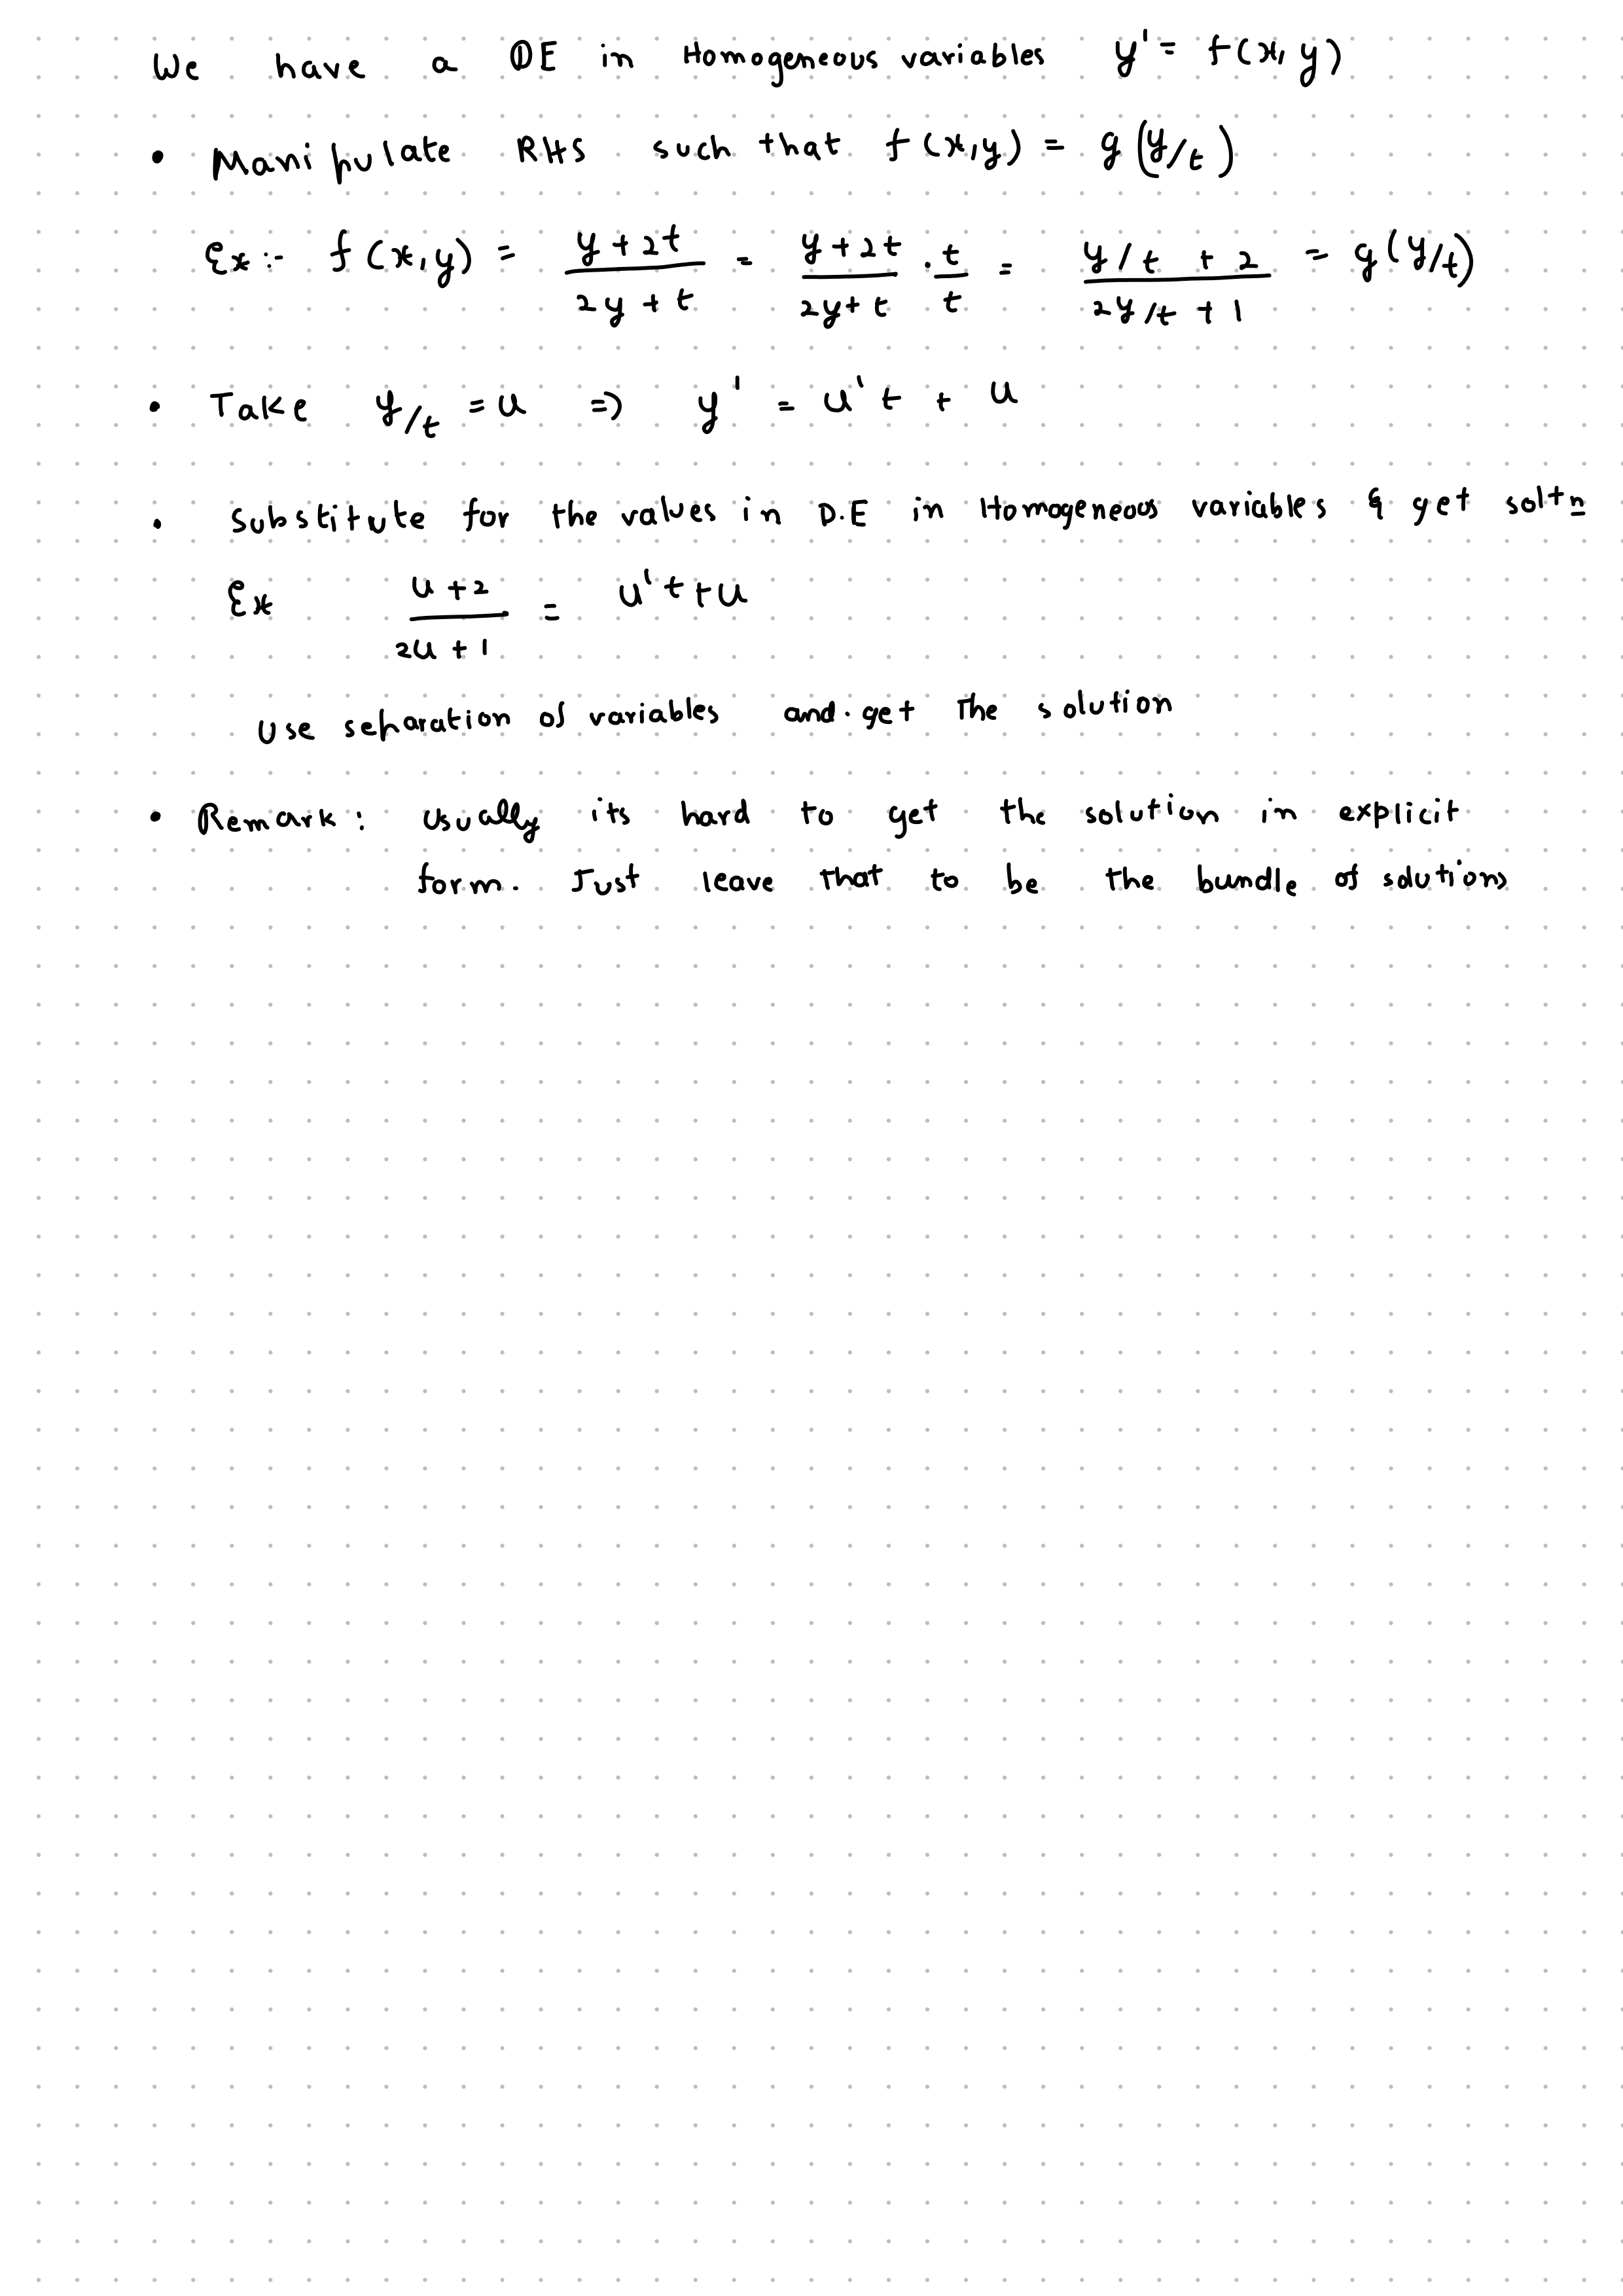 We have a DE in Homogeneous variables y' = f(x, y)
• Manipulate RHS such that f(x,y) = g(y/t)
Ex :- f(x,y) = (y + 2t)/(2y + t) = (y + 2t)/(2y + t) · t/t = (y/t + 2)/(2y/t + 1) = g(y/t)
• Take y/t = u => y' = u't + u
• Substitute for the values in D.E in Homogeneous variables & get soltn
Ex (u + 2)/(2u + 1) = u't + u
use separation of variables and get the solution
• Remark : usually its hard to get the solution in explicit
form. Just leave that to be the bundle of solutions